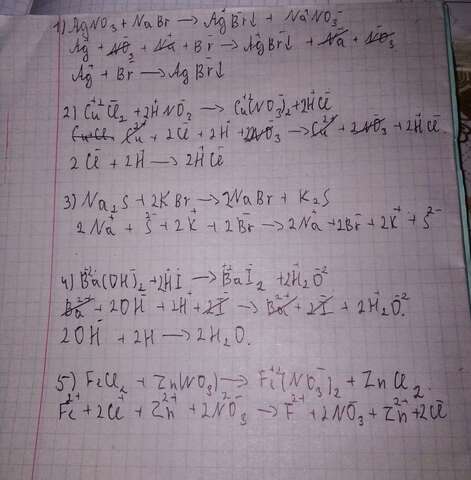 1) AgNO₃ + NaBr → Ag⁺Br⁻↓ + Na⁺NO₃⁻
Ag⁺ + NO₃⁻ + Na⁺ + Br⁻ → Ag⁺Br⁻↓ + Na⁺ + NO₃⁻
Ag⁺ + Br⁻ → AgBr↓
2) Cu⁺²Cl₂⁻ + 2H⁺NO₃⁻ → Cu⁺²(NO₃⁻)₂ + 2H⁺Cl⁻
Cu²⁺ + 2Cl⁻ + 2H⁺ + 2NO₃⁻ → Cu²⁺ + 2NO₃⁻ + 2H⁺Cl⁻
2Cl⁻ + 2H⁺ → 2H⁺Cl⁻
3) Na₂S + 2KBr → 2NaBr + K₂S
2Na⁺ + S²⁻ + 2K⁺ + 2Br⁻ → 2Na⁺ + 2Br⁻ + 2K⁺ + S²⁻
4) Ba⁺²(OH)₂⁻ + 2H⁺I⁻ → Ba⁺²I₂⁻ + 2H₂⁺O⁻²
Ba²⁺ + 2OH⁻ + 2H⁺ + 2I⁻ → Ba²⁺ + 2I⁻ + 2H₂⁺O⁻².
2OH⁻ + 2H⁺ → 2H₂O.
5) FeCl₂ + Zn(NO₃) → Fe⁺²(NO₃⁻)₂ + ZnCl₂.
Fe²⁺ + 2Cl⁺ + Zn²⁺ + 2NO₃⁻ → F²⁺ + 2NO₃⁻ + Zn²⁺ + 2Cl⁻